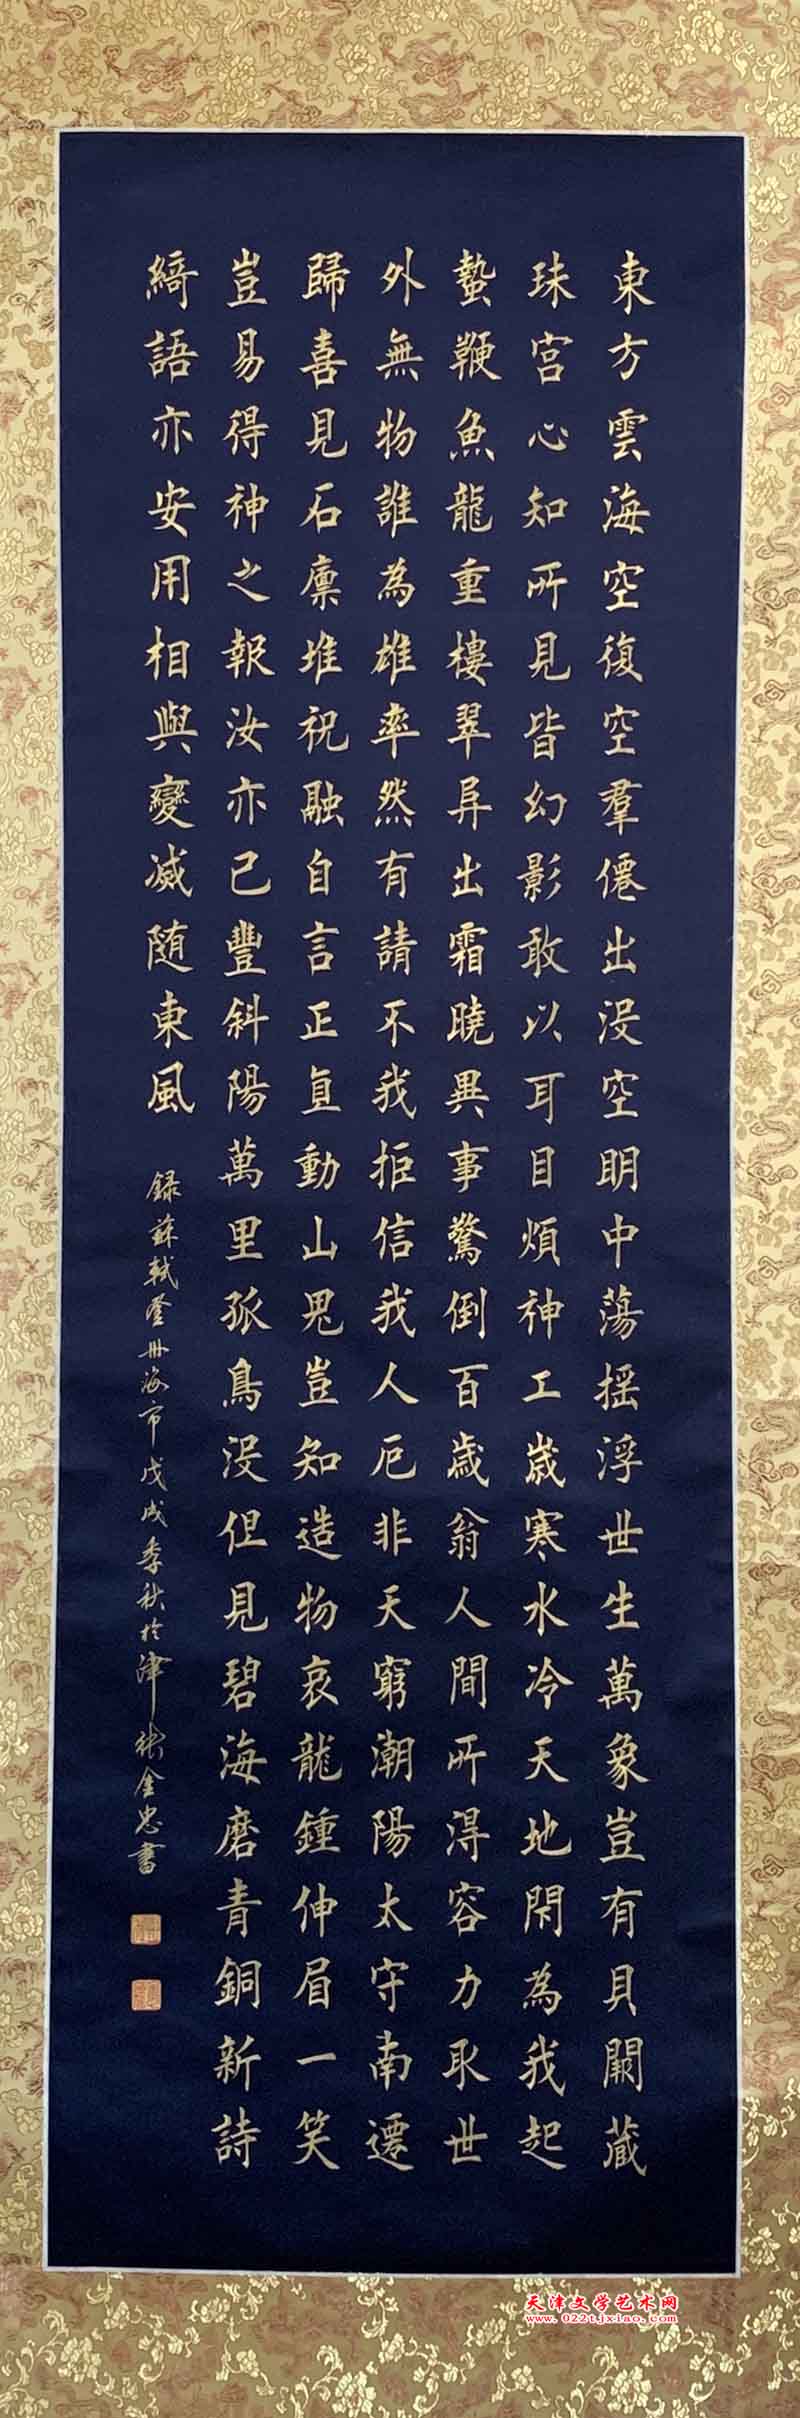 東方雲海空復空羣僊出沒空明中蕩搖浮世生萬象豈有貝闕藏
珠宮心知所見皆幻影敢以耳目煩神工歲寒水冷天地閑為我起
蟄鞭魚龍重樓翠阜出霜曉異事驚倒百歲翁人間所得容力取世
外無物誰為雄率然有請不我拒信我人厄非天窮潮陽太守南遷
歸喜見石廪堆祝融自言正直動山鬼豈知造物哀龍鍾伸眉一笑
豈易得神之報汝亦已豐斜陽萬里孤鳥沒但見碧海磨青銅新詩
綺語亦安用相與變滅随東風
録蘇軾登州海市戊戌季秋於津張金忠書
天津文学艺术网
www.022tjxiao.com